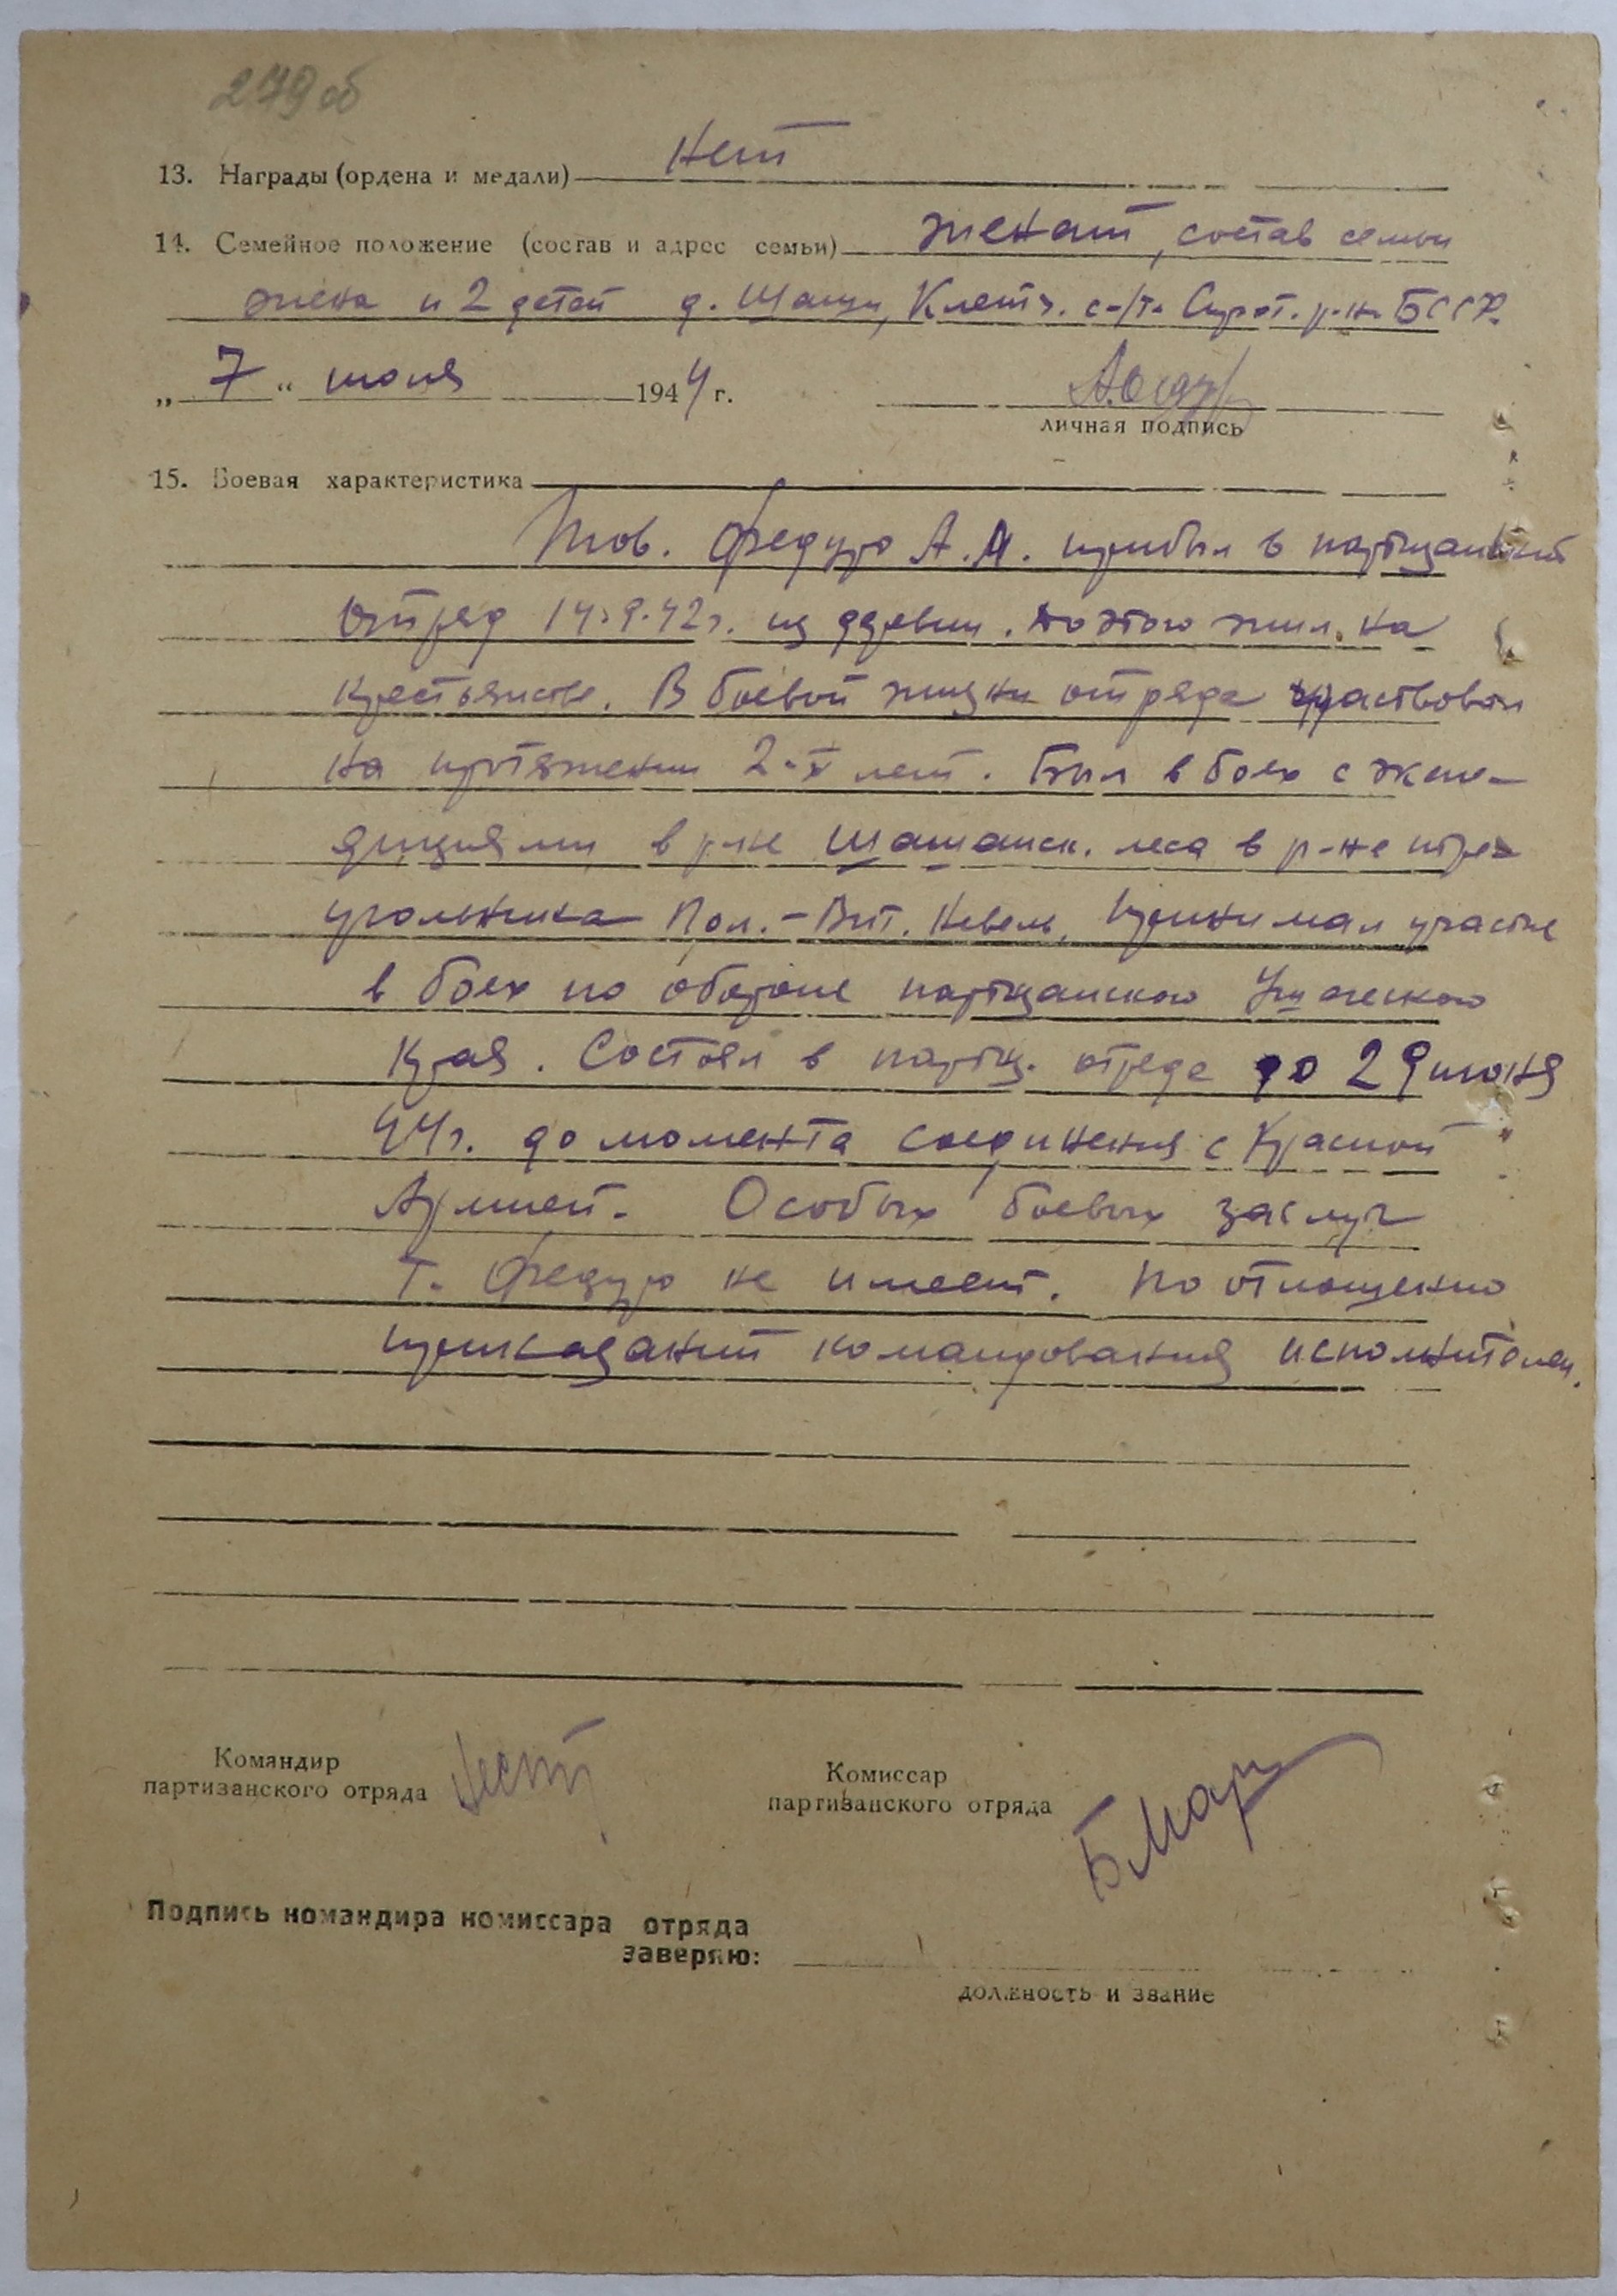 279 об
13. Награды (ордена и медали) нет
14. Семейное положение (состав и адрес семьи) женат, состав семьи
жена и 2 детей д. Шащи, Клетч. с-/с. Сирот. р-н. БССР.
„7“ июля 1944 г.
личная подпись
15. Боевая характеристика
Тов. Федуро А.А. прибыл в партизанский
отряд 14.9.42г. из деревни. До этого жил на
крестьянстве. В боевой жизни отряда участвовал
на протяжении 2-х лет. Был в боях с экспе-
дициями в р-не Шашанск. леса в р-не тре-
угольника Пол.-Вит. Невель, принимал участие
в боях по обороне партизанского Ушачского
края. Состоял в партиз. отряде до 29 июня
44г. до момента соединения с Красной
Армией. Особых боевых заслуг
т. Федуро не имеет. По отношению
приказаний командования исполнителен.
Командир
партизанского отряда
Комиссар
партизанского отряда
Подпись командира комиссара отряда
заверяю:
должность и звание